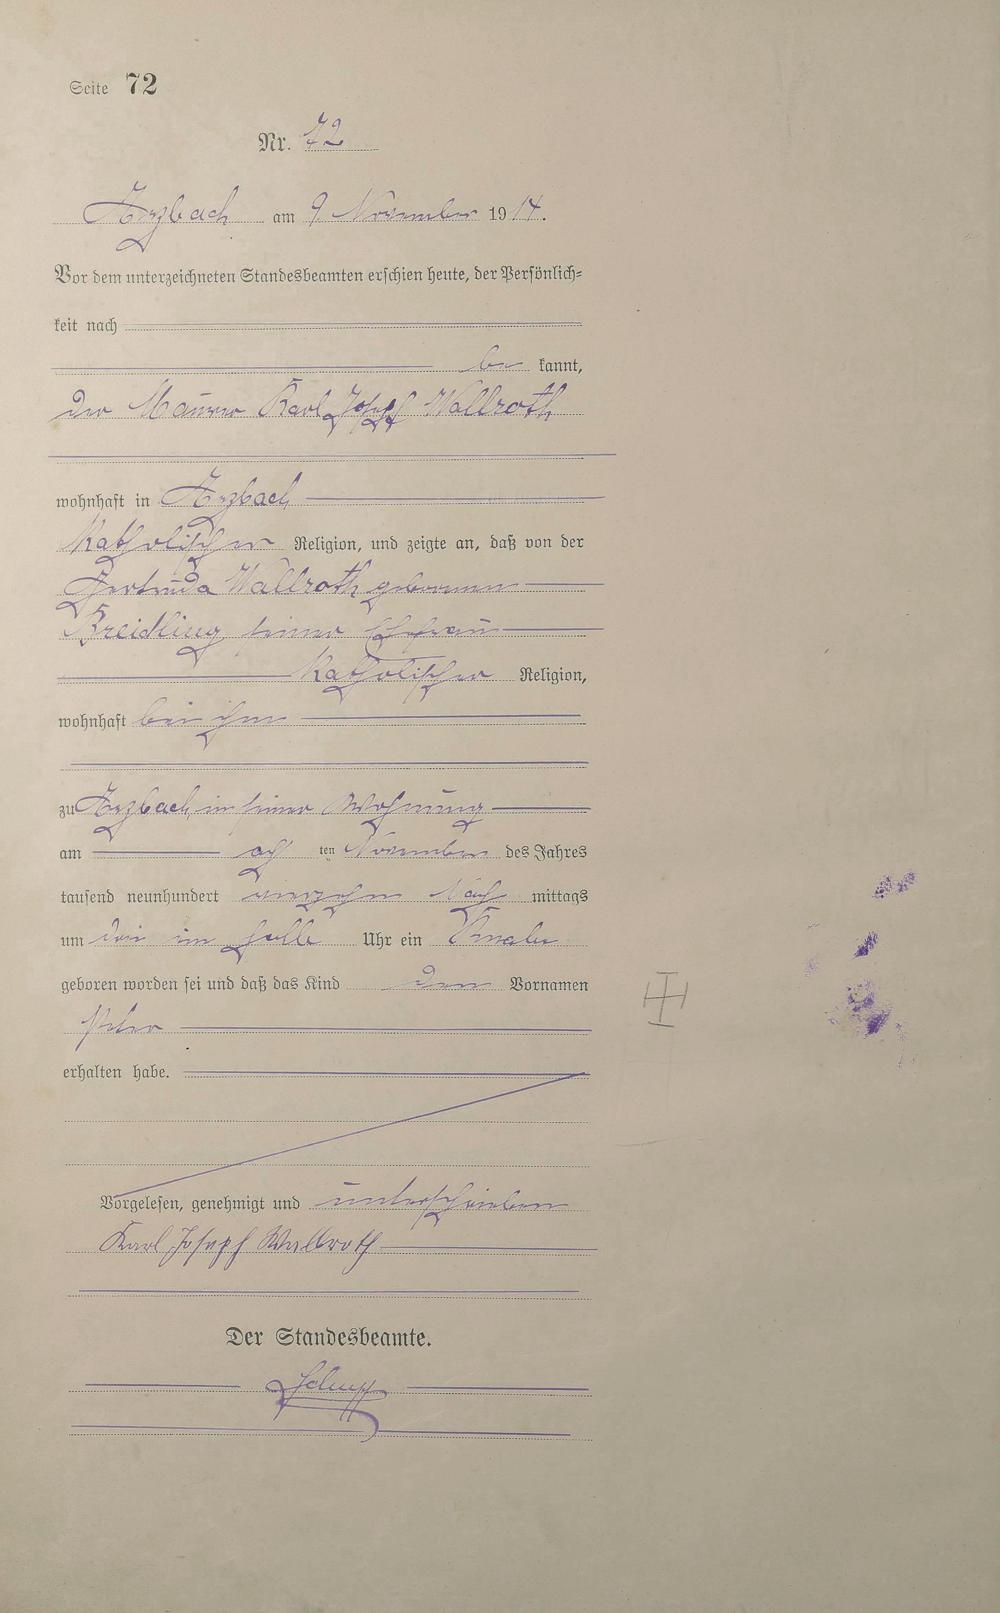 Seite 72
Nr. 72
Arzbach am 9 November 1914.
Vor dem unterzeichneten Standesbeamten erschien heute, der Persönlich=
keit nach
be kannt,
der Maurer Karl Joseph Wallroth
wohnhaft in Arzbach
Katholischer Religion, und zeigte an, daß von der
Gertruda Wallroth geborenen
Breidling seiner Ehefrau
Katholischer Religion,
wohnhaft bei ihm
zu Arzbach, in seiner Wohnung
am ach ten November des Jahres
tausend neunhundert vierzehn Nach mittags
um drei im halb Uhr ein Knabe
geboren worden sei und daß das Kind den Vornamen
Peter
erhalten habe.
Vorgelesen, genehmigt und unterschrieben
Karl Joseph Wallroth
Der Standesbeamte.